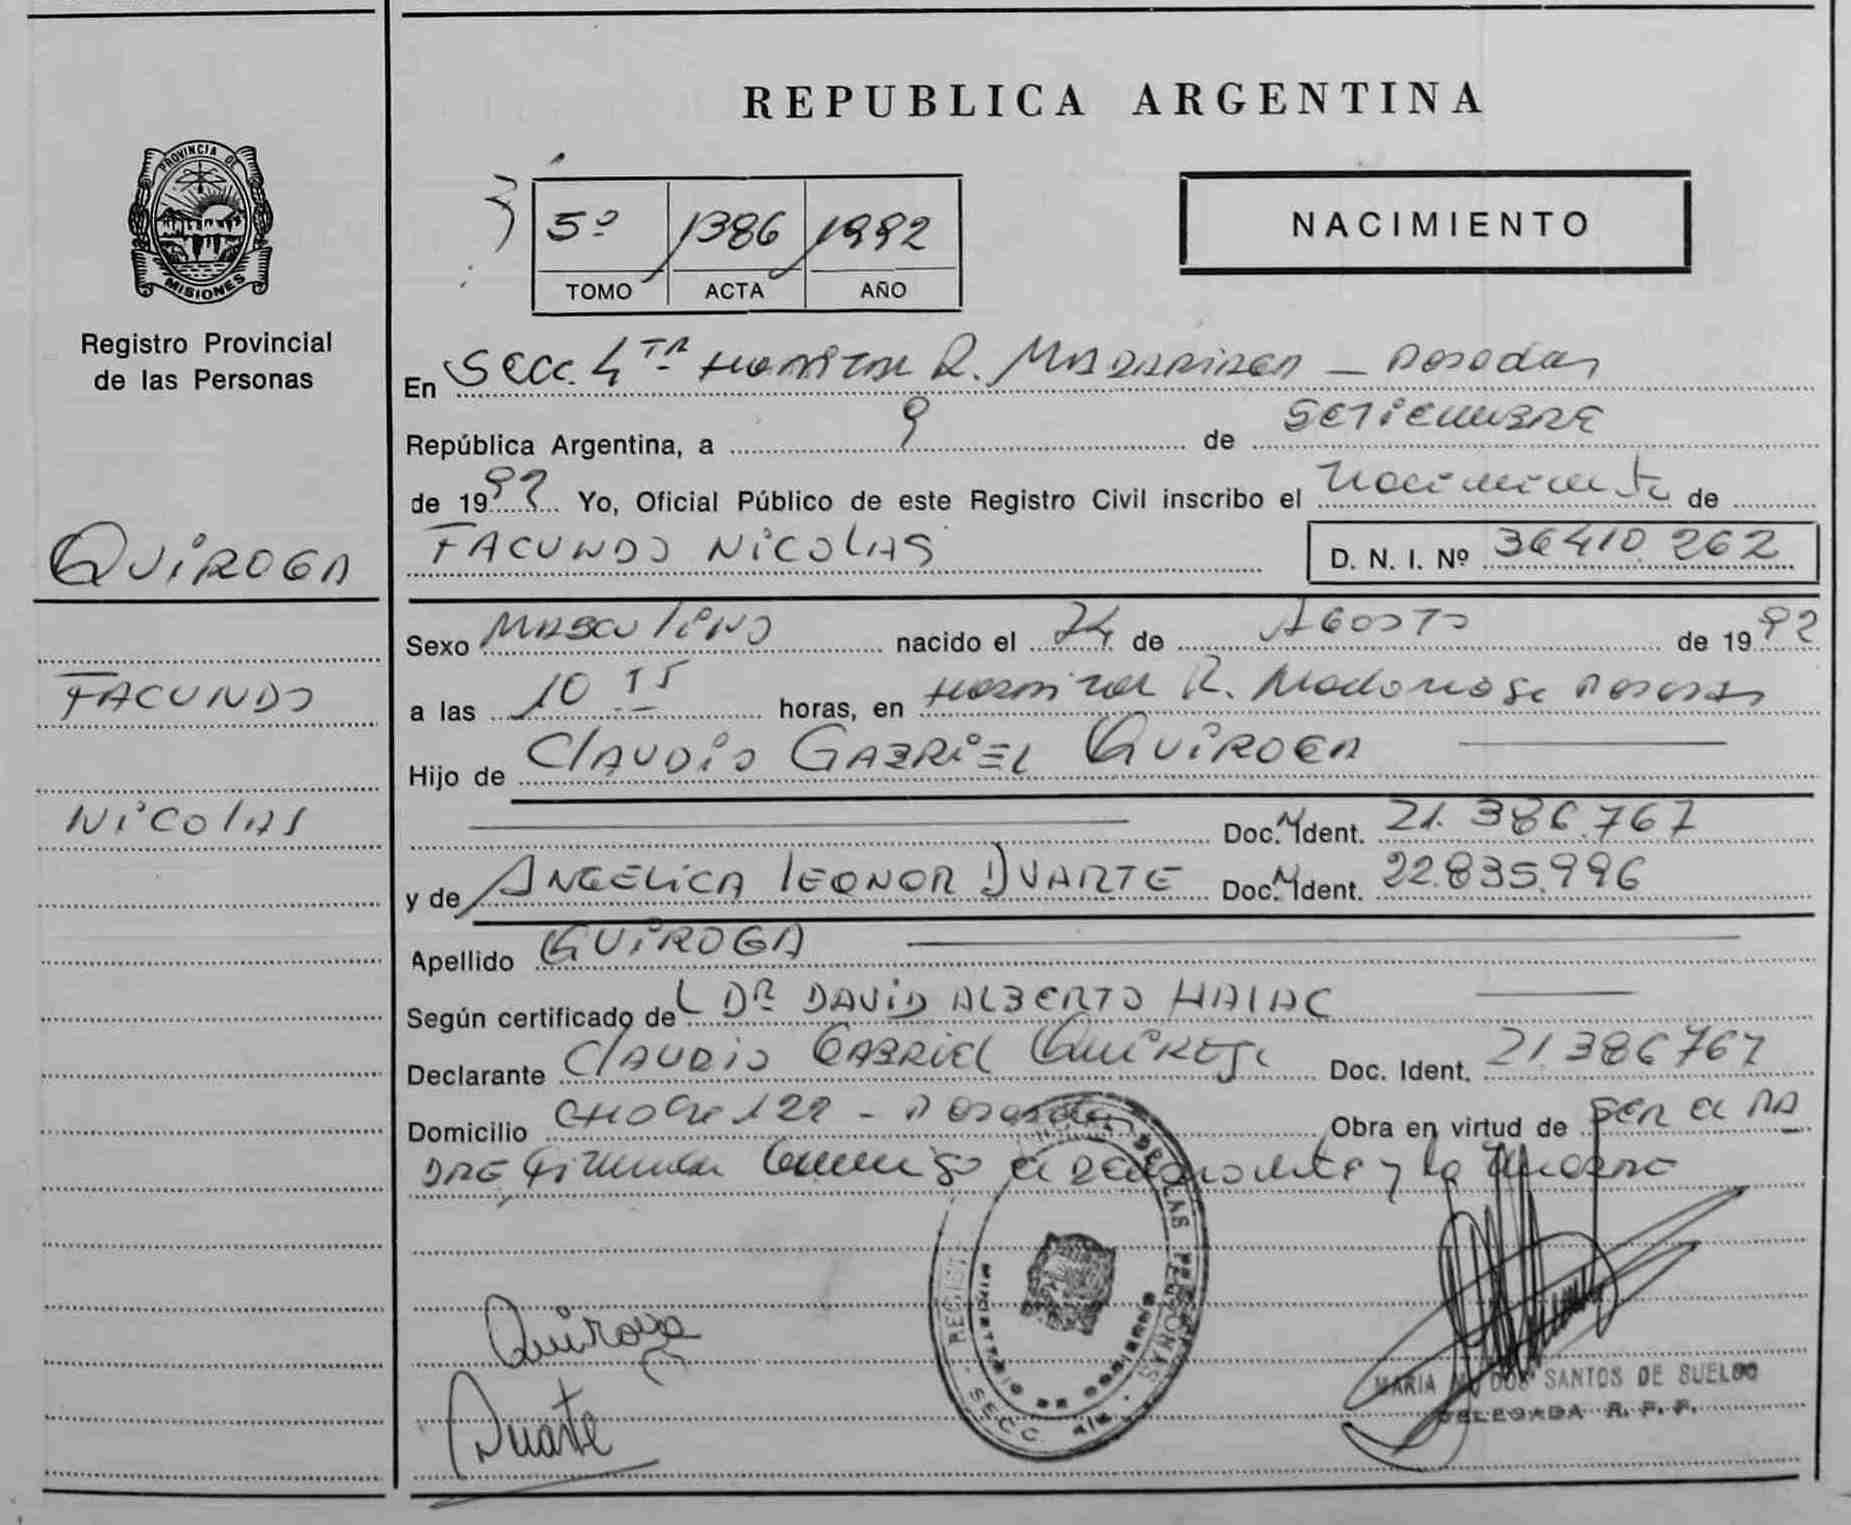 REPUBLICA ARGENTINA
PROVINCIA DE
MISIONES
Registro Provincial
de las Personas
5º 1386 1992
TOMO ACTA AÑO
NACIMIENTO
En Secc. 4TA Hospital R. Madariaga — Posadas
República Argentina, a 9 de Setiembre
de 1992 Yo, Oficial Público de este Registro Civil inscribo el nacimiento de
QUIROGA
FACUNDO NICOLAS D. N. I. Nº 36410.262
FACUNDO
NICOLAS
Sexo Masculino nacido el 24 de Agosto de 1992
a las 10 horas, en Hospital R. Madariaga Posadas
Hijo de Claudio Gabriel Quiroga
Doc. Ident. 21.386.767
y de Angelica Leonor Duarte Doc. Ident. 22.835.996
Apellido QUIROGA
Según certificado de Dr David Alberto Halac
Declarante Claudio Gabriel Quiroga Doc. Ident. 21386767
Domicilio 122 - Posadas Obra en virtud de ser el pa
dre Firman conmigo el declarante y la madre
Quiroga
Duarte
DE LAS PERSONAS
MINISTERIO DE GOBIERNO
REGIST
SECC 4ta
MARIA DOS SANTOS DE SUELDO
DELEGADA R. P. P.